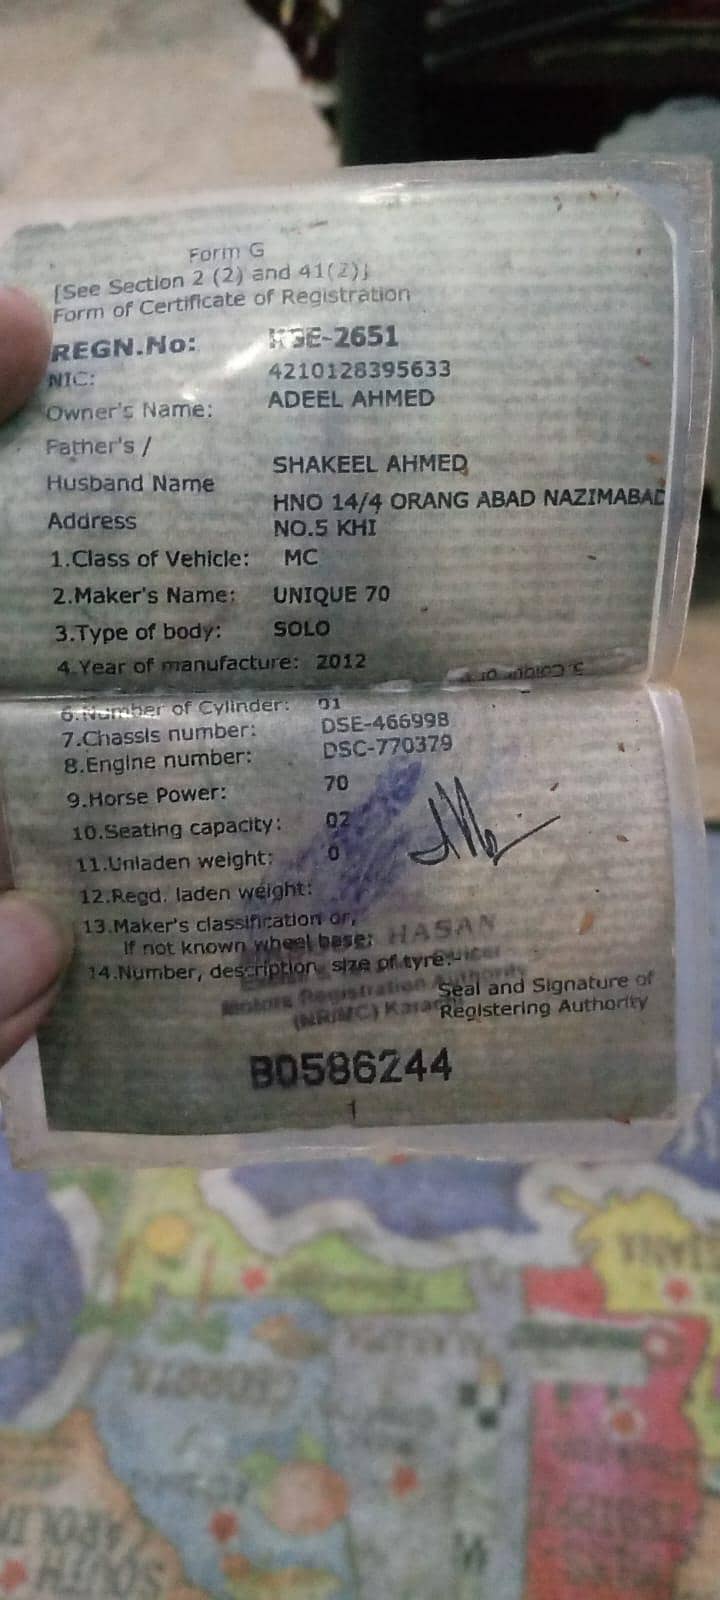 Form G
[See Section 2 (2) and 41(2)]
Form of Certificate of Registration
REGN.No: -2651
NIC: 4210128395633
Owner's Name: ADEEL AHMED
Father's /
Husband Name SHAKEEL AHMED
Address HNO 14/4 ORANG ABAD NAZIMABAD
NO.5 KHI
1.Class of Vehicle: MC
2.Maker's Name: UNIQUE 70
3.Type of body: SOLO
4.Year of manufacture: 2012
6.Number of Cylinder: 01
7.Chassis number: DSE-466998
8.Engine number: DSC-770379
9.Horse Power: 70
10.Seating capacity: 02
11.Unladen weight: 0
12.Regd. laden weight:
13.Maker's classification or,
If not known wheel base:
HASAN
14.Number, description, size of tyre:-
Motors Registration Authority
Seal and Signature of
Registering Authority
B0586244
1
SOUTH